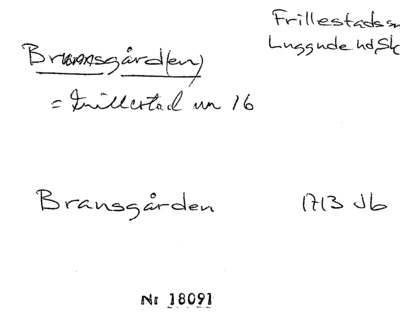 Frillestads sn
Luggude hd, Sk
Bransgård(en)
= Frillestad nr 16
Bransgården 1713 Jb
Nr 18091